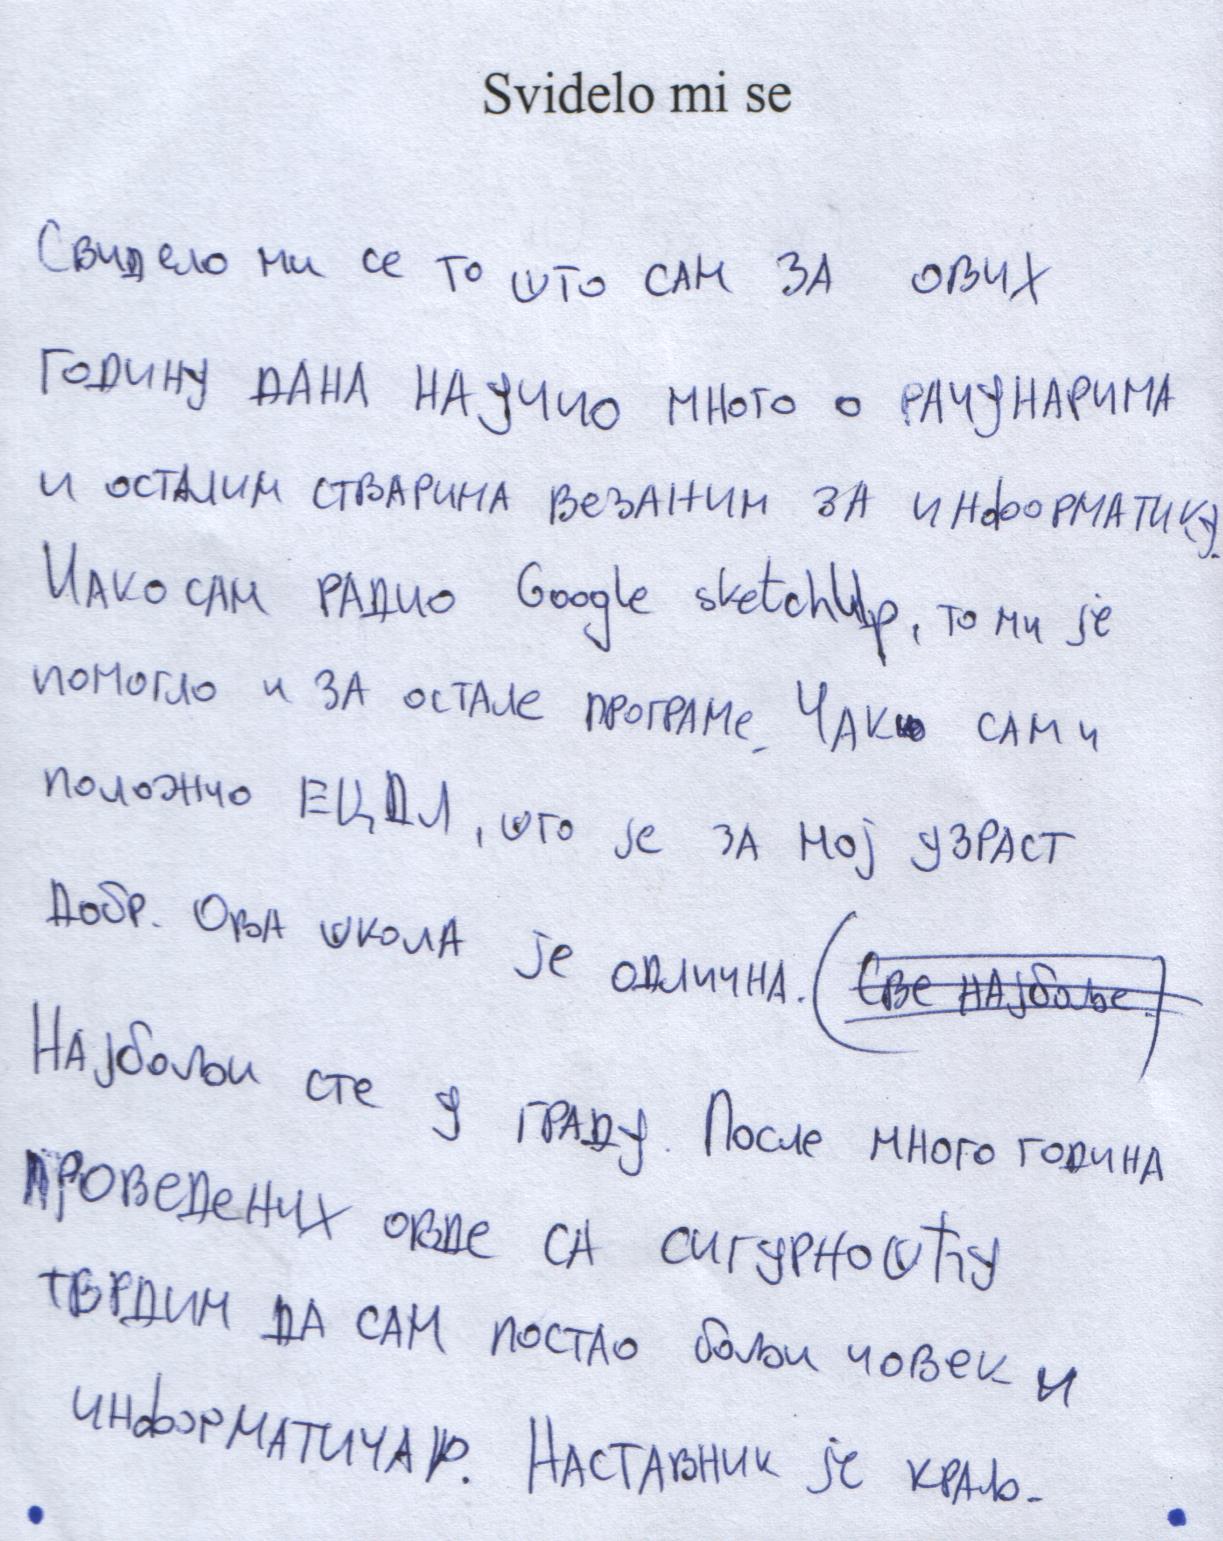 Svidelo mi se
Свидело ми се то што сам за ових
годину дана научио много о рачунарима
и осталим стварима везаним за информатику.
Иако сам радио Google sketchUp, то ми је
помогло и за остале програме. Чак сам и
положио ЕЦДЛ, што је за мој узраст
добр. Ова школа је одлична. (Све најбоље.)
Најбољи сте у граду. После много година
проведених овде са сигурношћу
тврдим да сам постао бољи човек и
информатичар. Наставник је краљ.